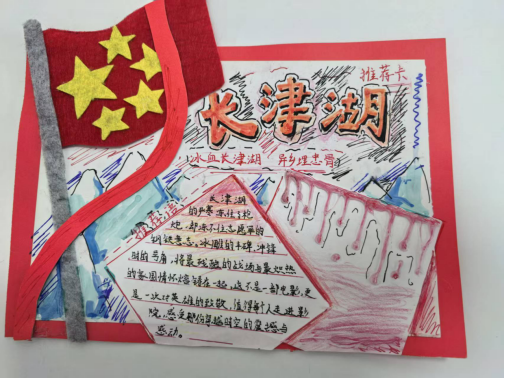 推荐卡
长津湖
冰血长津湖 异乡埋忠骨
推荐语
长津湖
的严寒冻住了枪
炮,却冻不住志愿军的
钢铁意志,冰雕的丰碑,冲锋
时的号角,将最残酷的战场与最炽热
的家国情怀熔铸在一起,这不是一部电影,更
是一次对英雄的致敬,值得每个人走进影
院,感受那份穿越时空的震撼与
感动。